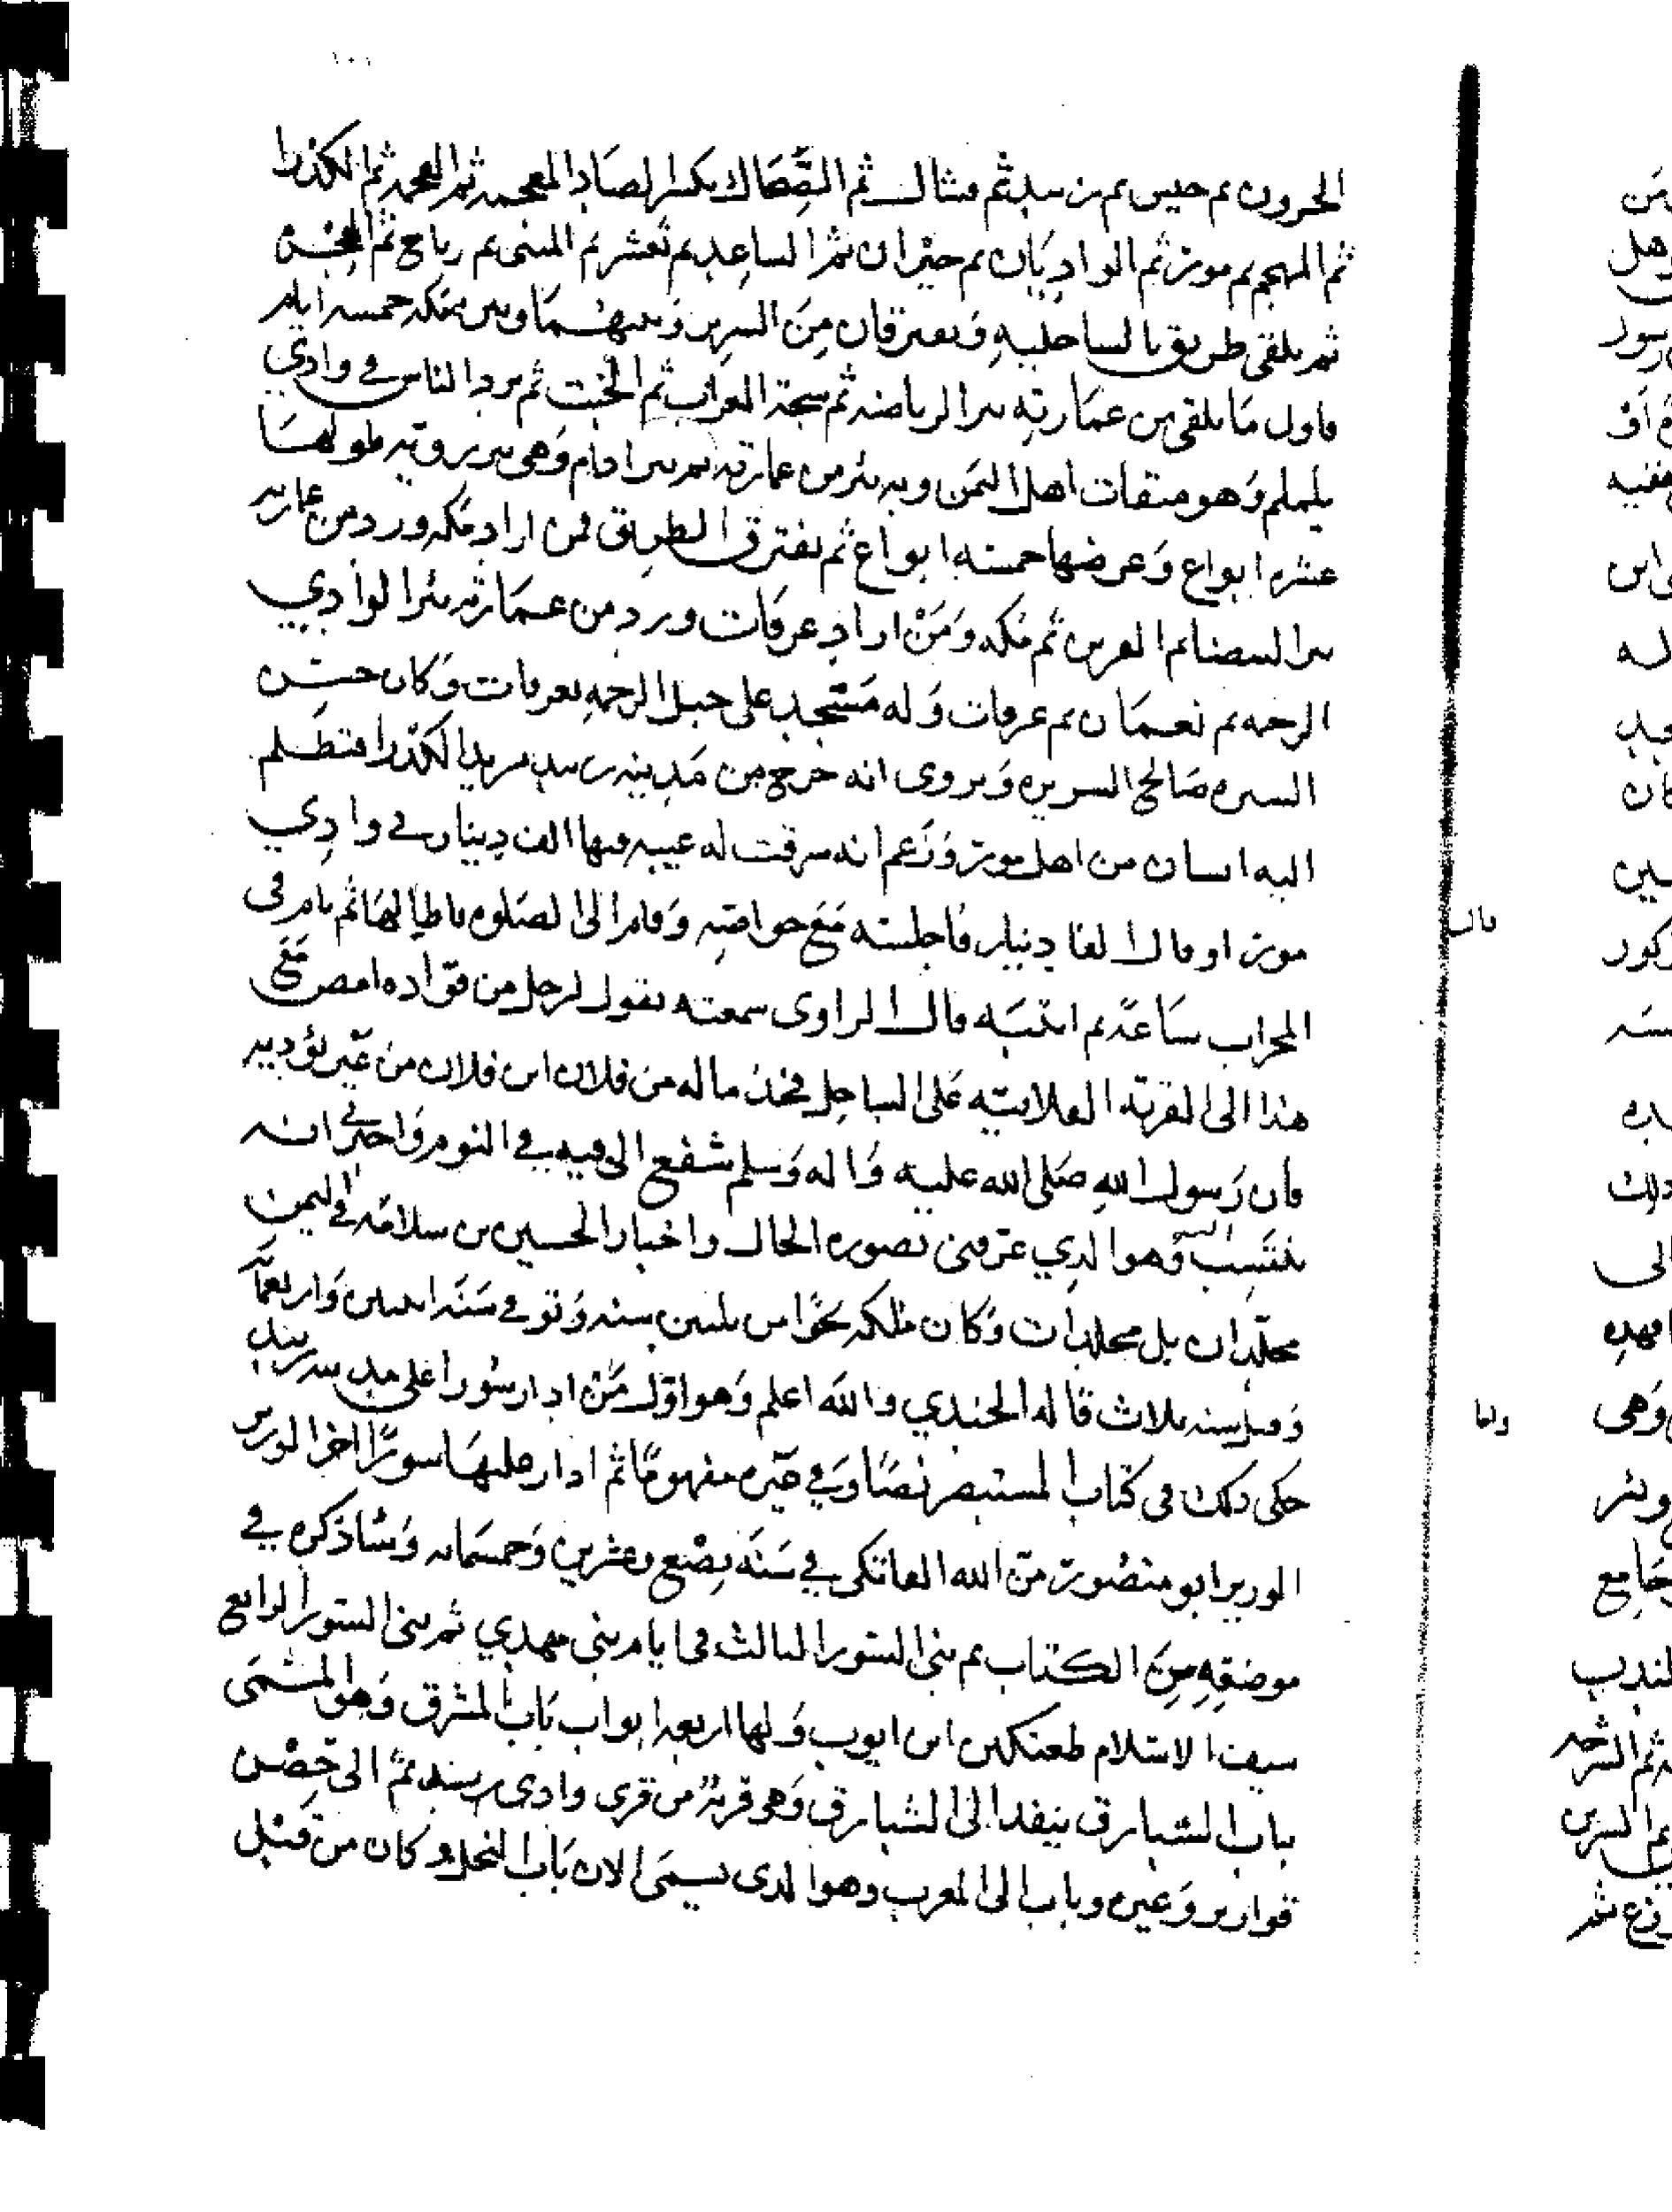 ١٠١
الحرون ثم حيس ثم زبيد ثم فشال ثم الضحاك بكسر الضاد المعجمه ثم القحمه ثم الكدرا
ثم المهجم ثم مور ثم الواديان ثم حيران ثم الساعد ثم تعشر ثم المبنى ثم رياح ثم الهجر
ثم يلقى طريق الساحليه ويفترقان من السرين وبينهما وبين مكه خمسه ايام
فاول ما يلقى من عمارته بئر الرياضه ثم سبخة الغراب ثم الخبت ثم يرد الناس في وادي
يلملم وهو ميقات اهل اليمن وبه بئر من عمارته ثم بئر ادام وهي بئر رويه طولها
عشره ابواع وعرضها خمسه ابواع ثم يفترق الطريق فمن اراد مكه ورد من عمارته
بئر البيضا ثم القرين ثم مكه ومن اراد عرفات ورد من عمارته بئر الوادي
الرحبه ثم نعمان ثم عرفات وله مسجد على جبل الرحمه بعرفات وكان حسن
السيره صالح السريره ويروى انه خرج من مدينه زبيد يريد الكدرا فتظلم
اليه انسان من اهل مور وزعم انه سرقت له عيبه فيها الف دينار في وادي
مور او قال الفا دينار فاجلسه مع خواصه وقام الى الصلوه فاطالها ثم نام في
المحراب ساعة ثم انتبه قال الراوي سمعته يقول لرجل من قواده امض مع
هذا الى القرية الفلانيه على الساحل فخذ ماله من فلان ابن فلان من غير تؤديه
فان رسول الله صلى الله عليه واله وسلم شفع الي فيه في النوم واخبرني انه
ينتسب اليه وهو الذي عرفني بصوره الحال واخبار الحسين بن سلامه في اليمن
مجلدان بل مجلدات وكان ملكه نحوا من ثلثين سنه وتوفي سنة اثنتين واربعمائه
وقيل سنه ثلاث قاله الجندي والله اعلم وهو اول من ادار سورا على مدينه زبيد
حكى ذلك في كتاب المستبصر نصا وفي غيره مفهوما ثم ادار عليها سورا اخر الوزير
الوزير ابو منصور من الله الفاتكي في سنة بضع وعشرين وخمسمائه وساذكره في
موضعه من الكتاب ثم بنى السور الثالث في ايام بني مهدي ثم بنى السور الرابع
سيف الاسلام طغتكين ابن ايوب ولها اربعه ابواب باب المشرق وهو المسمى
باب الشبارق ينفد الى الشبارق وهو قرية من قرى وادى زبيد ثم الى حصن
قوارير وغيره وباب الى المغرب وهو الذي يسمى الان باب النخل وكان من قبل
قال
واما